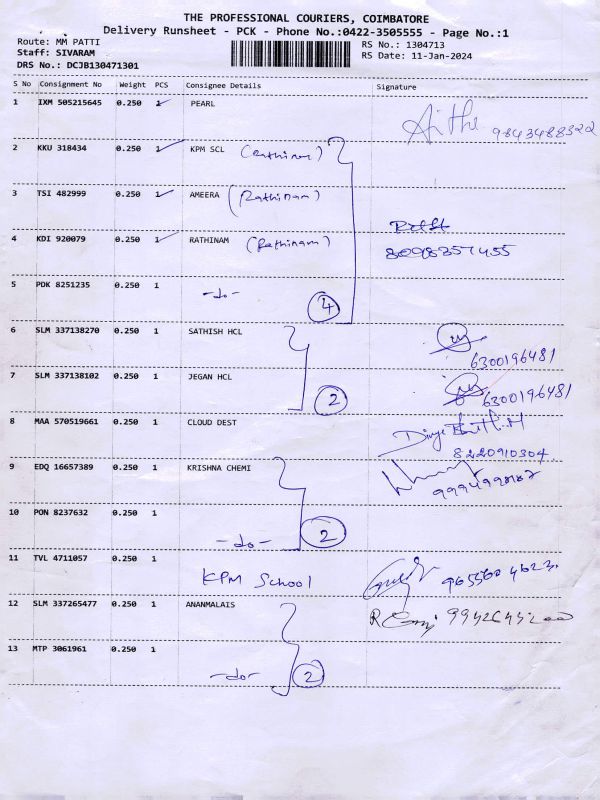 THE PROFESSIONAL COURIERS, COIMBATORE
Delivery Runsheet - PCK - Phone No.:0422-3505555 - Page No.:1
Route: MM PATTI RS No.: 1304713
Staff: SIVARAM RS Date: 11-Jan-2024
DRS No.: DCJB130471301
S No Consignment No Weight PCS Consignee Details Signature
1 IXM 505215645 0.250 1 PEARL
9843488322
2 KKU 318434 0.250 1 KPM SCL (Rathinam)
3 TSI 482999 0.250 1 AMEERA (Rathinam)
4 KDI 920079 0.250 1 RATHINAM (Rathinam)
8098357455
5 PDK 8251235 0.250 1 -do- 4
6 SLM 337138270 0.250 1 SATHISH HCL
6300196481
7 SLM 337138102 0.250 1 JEGAN HCL 2 6300196481
8 MAA 570519661 0.250 1 CLOUD DEST
8220910304
9 EDQ 16657389 0.250 1 KRISHNA CHEMI
10 PON 8237632 0.250 1 -do- 2
11 TVL 4711057 0.250 1 KPM School 9655604623
12 SLM 337265477 0.250 1 ANANMALAIS
13 MTP 3061961 0.250 1 -do- 2